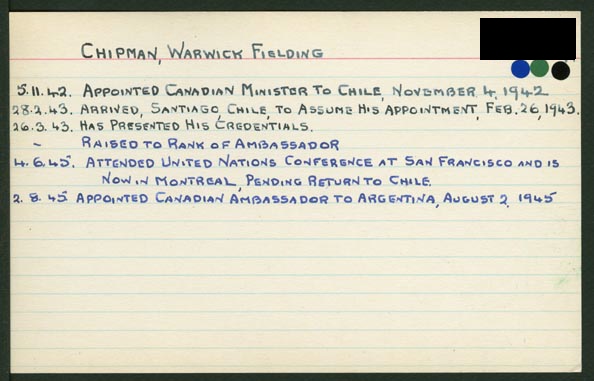 CHIPMAN, WARWICK FIELDING
5.11.42. APPOINTED CANADIAN MINISTER TO CHILE, NOVEMBER 4, 1942
28.2.43. ARRIVED, SANTIAGO, CHILE, TO ASSUME HIS APPOINTMENT, FEB. 26, 1943.
26.3.43. HAS PRESENTED HIS CREDENTIALS.
~ RAISED TO RANK OF AMBASSADOR
4.6.45. ATTENDED UNITED NATIONS CONFERENCE AT SAN FRANCISCO AND IS
NOW IN MONTREAL, PENDING RETURN TO CHILE.
2.8.45 APPOINTED CANADIAN AMBASSADOR TO ARGENTINA, AUGUST 2, 1945